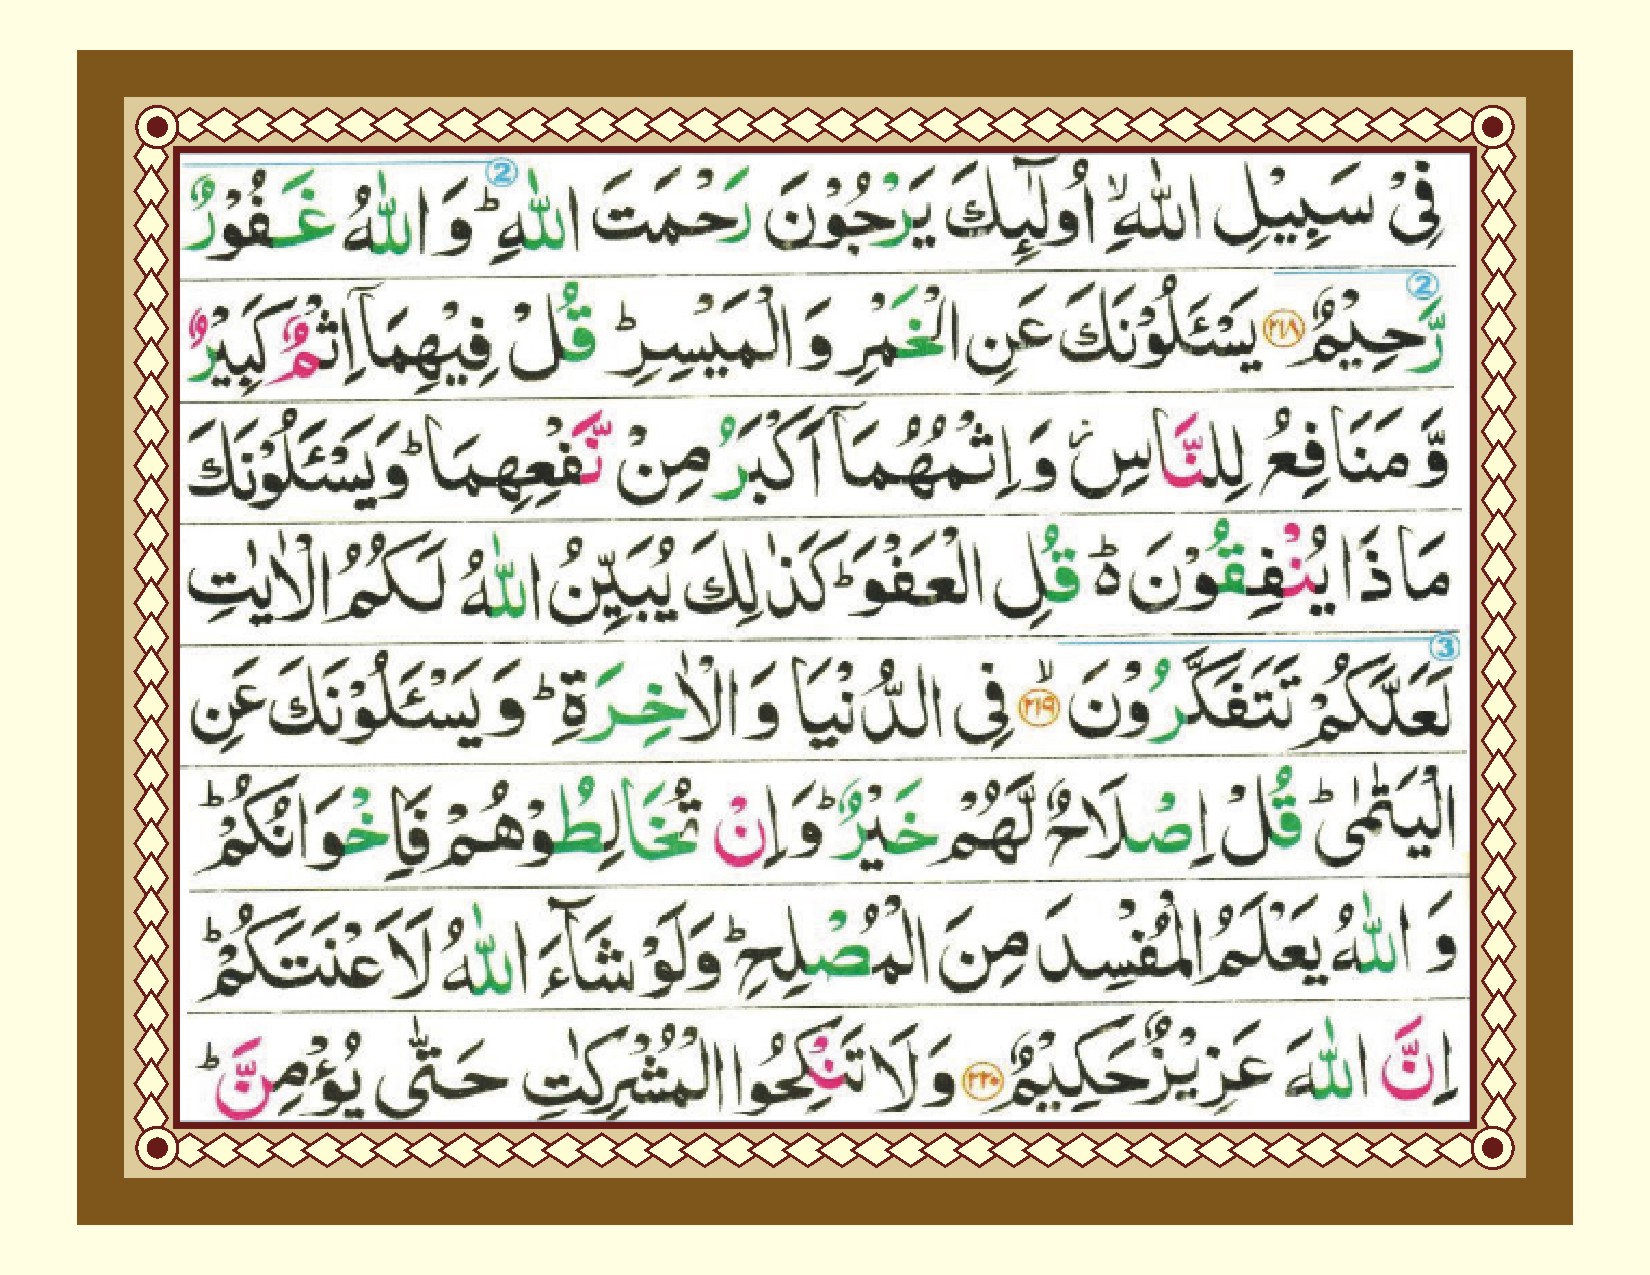 فِیْ سَبِیْلِ اللّٰهِ ۙ اُولٰٓئِكَ یَرْجُوْنَ رَحْمَتَ اللّٰهِ ؕ وَ اللّٰهُ غَفُوْرٌ ②
رَّحِیْمٌ ② ﴿۲۱۸﴾ یَسْـَٔلُوْنَكَ عَنِ الْخَمْرِ وَ الْمَیْسِرِ ؕ قُلْ فِیْهِمَاۤ اِثْمٌ كَبِیْرٌ
وَّ مَنَافِعُ لِلنَّاسِ ؗ وَ اِثْمُهُمَاۤ اَكْبَرُ مِنْ نَّفْعِهِمَا ؕ وَیَسْـَٔلُوْنَكَ
مَا ذَا یُنْفِقُوْنَ ؕ۬ قُلِ الْعَفْوَ ؕ كَذٰلِكَ یُبَیِّنُ اللّٰهُ لَكُمُ الْاٰیٰتِ
لَعَلَّكُمْ تَتَفَكَّرُوْنَ ③ ﴿۲۱۹﴾ ۙ فِی الدُّنْیَا وَ الْاٰخِرَةِ ؕ وَ یَسْـَٔلُوْنَكَ عَنِ
الْیَتٰمٰی ؕ قُلْ اِصْلَاحٌ لَّهُمْ خَیْرٌ ؕ وَ اِنْ تُخَالِطُوْهُمْ فَاِخْوَانُكُمْ ؕ
وَ اللّٰهُ یَعْلَمُ الْمُفْسِدَ مِنَ الْمُصْلِحِ ؕ وَلَوْ شَآءَ اللّٰهُ لَاَعْنَتَكُمْ ؕ
اِنَّ اللّٰهَ عَزِیْزٌ حَكِیْمٌ ﴿۲۲۰﴾ وَلَا تَنْكِحُوا الْمُشْرِكٰتِ حَتّٰی یُؤْمِنَّ ؕ